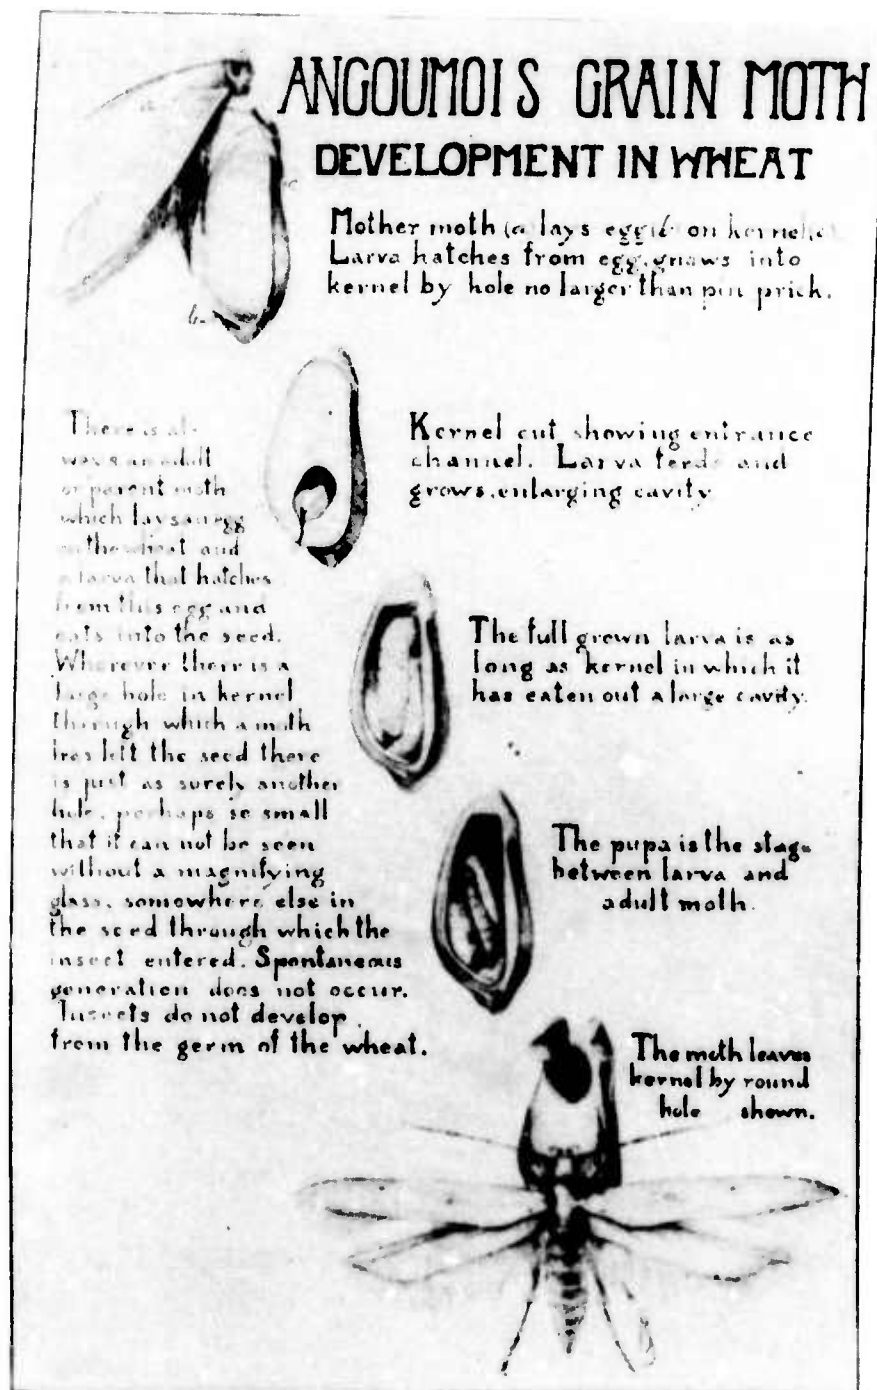 ANGOUMOIS GRAIN MOTH
DEVELOPMENT IN WHEAT
Mother moth (a lays egg (b on kernel (c
Larva hatches from egg, gnaws into
kernel by hole no larger than pin prick.
b
Kernel cut showing entrance
channel. Larva feeds and
grows, enlarging cavity
There is al-
ways an adult
or parent moth
which lays an egg
on the wheat and
a larva that hatches
from this egg and
eats into the seed.
Wherever there is a
large hole in kernel
through which a moth
has left the seed there
is just as surely another
hole, perhaps so small
that it can not be seen
without a magnifying
glass, somewhere else in
the seed through which the
insect entered. Spontaneous
generation does not occur.
Insects do not develop
from the germ of the wheat.
The full grown larva is as
long as kernel in which it
has eaten out a large cavity.
The pupa is the stage
between larva and
adult moth.
The moth leaves
kernel by round
hole shown.